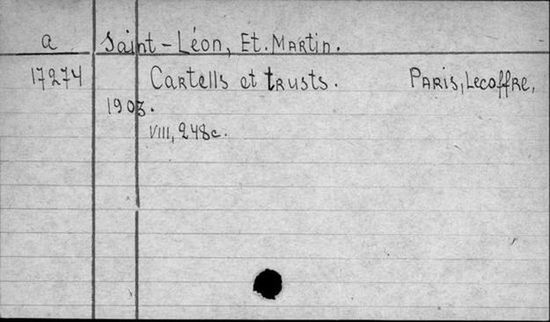 a Saint-Léon, Et. Martin.
17274 Cartells et trusts. Paris, Lecoffre,
1903.
VIII, 248c.